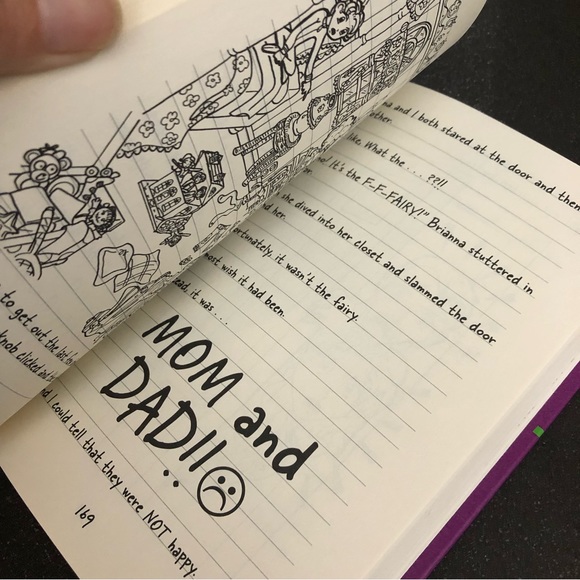 to get out the last
knob clicked and
na and I both stared at the door and then
other.
like, What the . . . ??!!
It's the F-F-FAIRY!" Brianna stuttered in
she dived into her closet and slammed the door
her.
fortunately, it wasn't the fairy.
most wish it had been.
ead, it was . . .
MOM and
DAD!! ☹
I could tell that they were NOT happy.
169